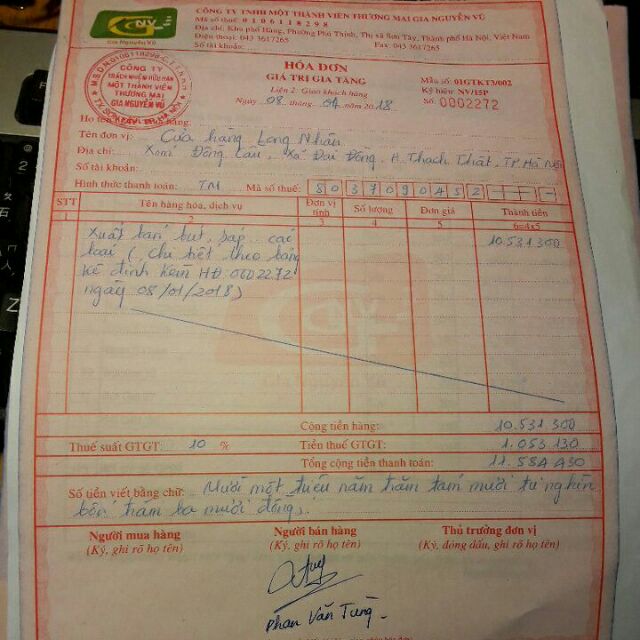 CÔNG TY TNHH MỘT THÀNH VIÊN THƯƠNG MẠI GIA NGUYÊN VŨ
Mã số thuế: 0 1 0 6 1 1 8 2 9 8
Địa chỉ: Khu phố Hàng, Phường Phú Thịnh, Thị xã Sơn Tây, Thành phố Hà Nội, Việt Nam
Điện thoại: 043 3617265 Fax: 043 3617265
Số tài khoản:
NV
Gia Nguyên Vũ
M.S.D.N:0106118298-C.T.T.N.H.H
CÔNG TY
TRÁCH NHIỆM HỮU HẠN
MỘT THÀNH VIÊN
THƯƠNG MẠI
GIA NGUYÊN VŨ
HÓA ĐƠN
GIÁ TRỊ GIA TĂNG
Liên 2: Giao khách hàng
Ngày 08 tháng 04 năm 2018
Mẫu số: 01GTKT3/002
Ký hiệu: NV/15P
Số: 0002272
Họ tên
Tên đơn vị: Cửa hàng Long Nhàn
Địa chỉ: Xóm Đông Cầu, Xã Đại Đồng, H. Thạch Thất, TP. Hà Nội
Số tài khoản:
Hình thức thanh toán: TM Mã số thuế: 8 0 3 7 0 9 0 4 5 2
STT Tên hàng hóa, dịch vụ Đơn vị tính Số lượng Đơn giá Thành tiền
1 2 3 4 5 6=4x5
Xuất bán bút, sáp các 10.531.300
loại ( Chi tiết theo bảng
kê đính kèm HĐ 0002272
ngày 08/01/2018)
Cộng tiền hàng: 10.531.300
Thuế suất GTGT: 10 % Tiền thuế GTGT: 1.053.130
Tổng cộng tiền thanh toán: 11.584.430
Số tiền viết bằng chữ: Mười một triệu năm trăm tám mười tư nghìn
bốn trăm ba mười đồng.
Người mua hàng Người bán hàng Thủ trưởng đơn vị
(Ký, ghi rõ họ tên) (Ký, ghi rõ họ tên) (Ký, đóng dấu, ghi rõ họ tên)
Phan Văn Tùng